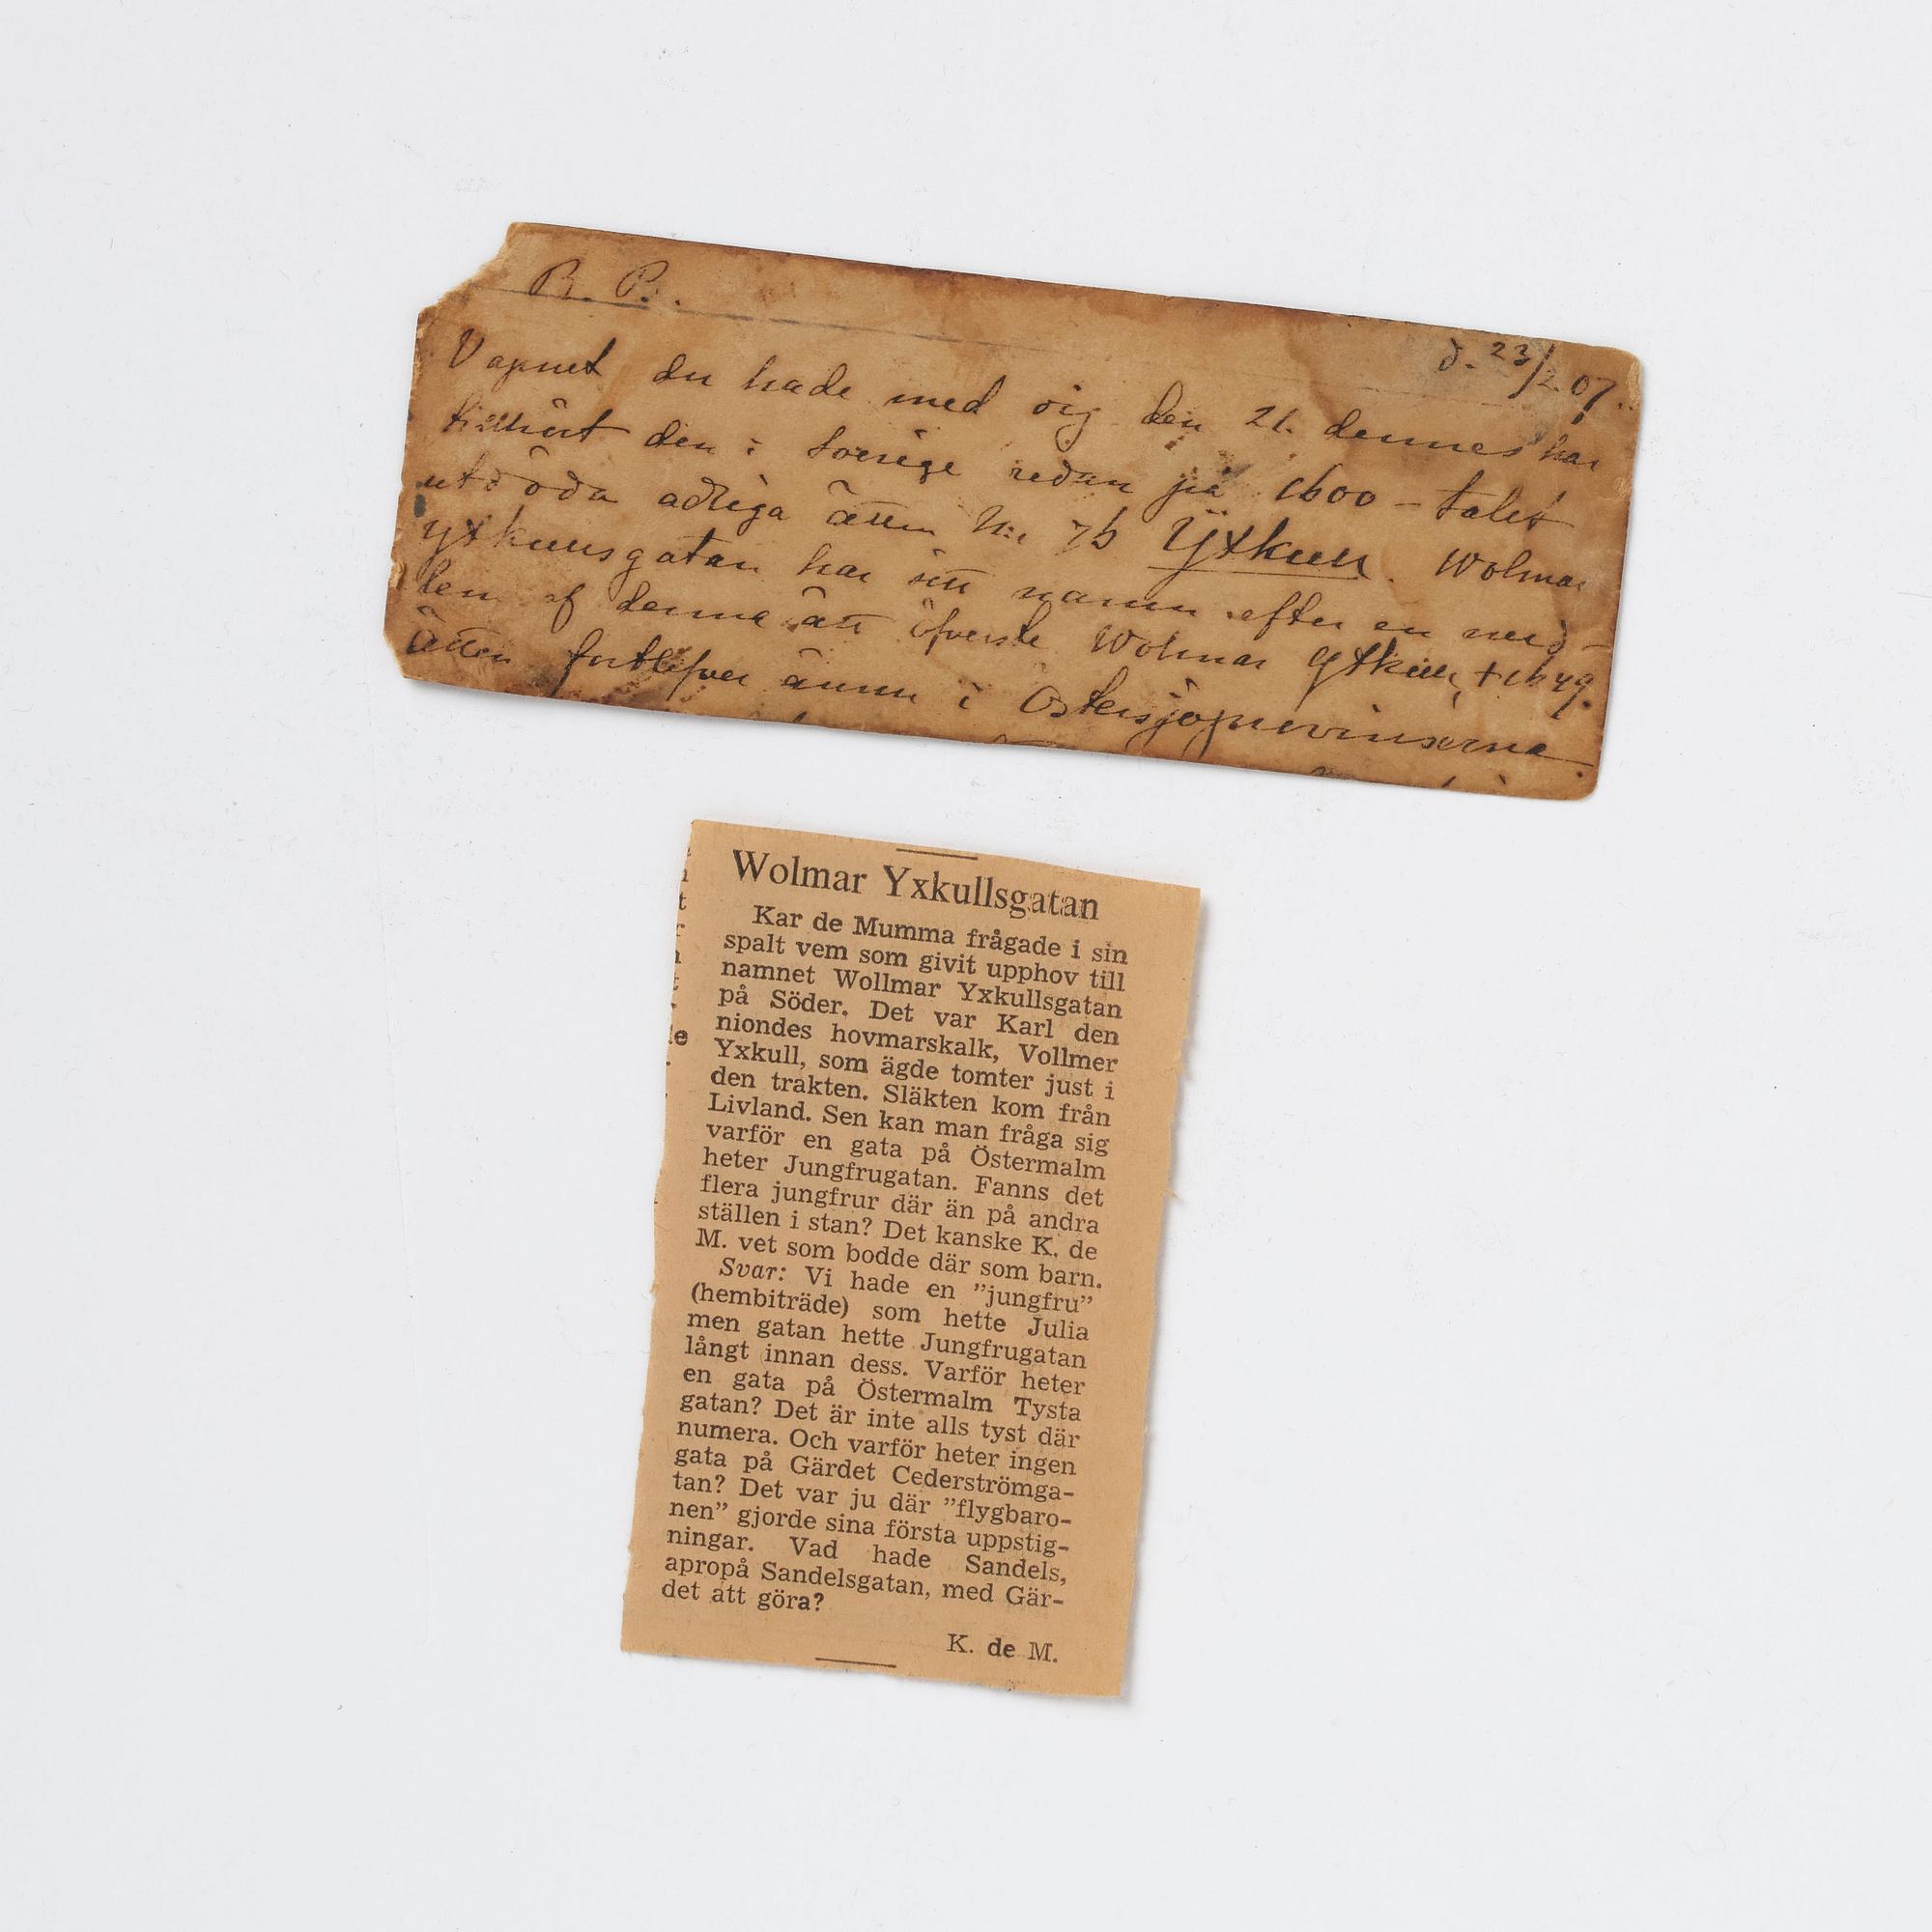 B. P.
d. 23/2 07.
Vapnet du hade med dig den 21. dennes har
tillhört den i Sverige redan på 1600-talet
utdöda adliga ätten N:r 76 Yxkull. Wolmar
yxkullsgatan har sitt namn efter en med-
lem af denna ätt öfverste Wolmar Yxkull, † 1649.
Ätten fortlefver ännu i Östersjöprovinserna.
Wolmar Yxkullsgatan
Kar de Mumma frågade i sin
spalt vem som givit upphov till
namnet Wollmar Yxkullsgatan
på Söder. Det var Karl den
niondes hovmarskalk, Vollmer
Yxkull, som ägde tomter just i
den trakten. Släkten kom från
Livland. Sen kan man fråga sig
varför en gata på Östermalm
heter Jungfrugatan. Fanns det
flera jungfrur där än på andra
ställen i stan? Det kanske K. de
M. vet som bodde där som barn.
Svar: Vi hade en ”jungfru”
(hembiträde) som hette Julia
men gatan hette Jungfrugatan
långt innan dess. Varför heter
en gata på Östermalm Tysta
gatan? Det är inte alls tyst där
numera. Och varför heter ingen
gata på Gärdet Cederströmga-
tan? Det var ju där ”flygbaro-
nen” gjorde sina första uppstig-
ningar. Vad hade Sandels,
apropå Sandelsgatan, med Gär-
det att göra?
K. de M.